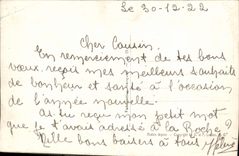 Le 30-12-22
Cher Cousin,
En remerciement de tes bons
vœux, reçois mes meilleurs souhaits
de bonheur et santé à l'occasion
de l'année nouvelle.
As-tu reçu mon petit mot
que je t'avais adressé à la Roche?
Mille bons baisers à tous